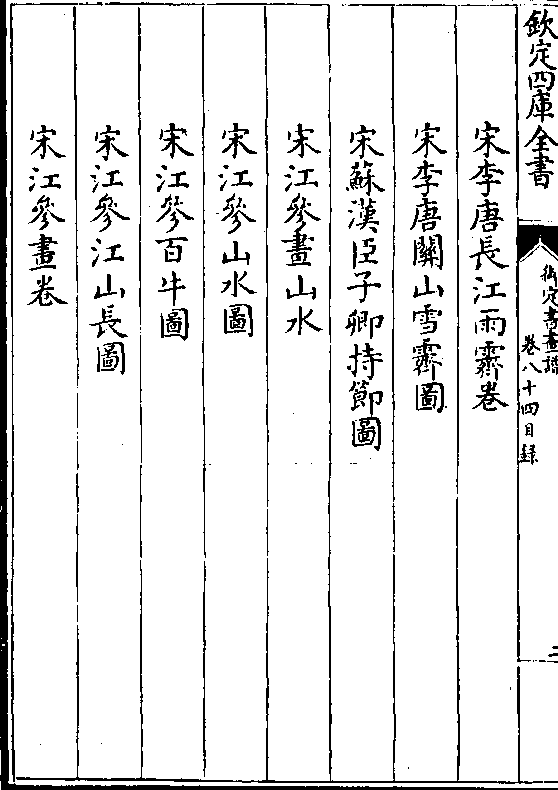 欽定四庫全書
御定書畫譜
卷八十四目錄
宋李唐長江雨霽卷
宋李唐關山雪霽圖
宋蘇漢臣子卿持節圖
宋江參畫山水
宋江參山水圖
宋江參百牛圖
宋江參江山長圖
宋江參畫卷